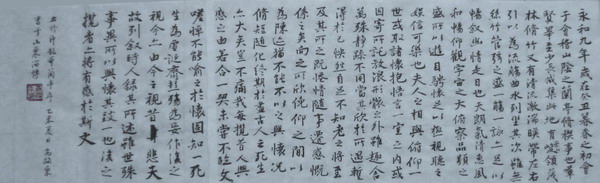 永和九年歲在癸丑暮春之初會
于會稽山陰之蘭亭脩禊事也羣
賢畢至少長咸集此地有崇領茂
林脩竹又有清流激湍暎帶左右
引以為流觴曲水列坐其次雖無
絲竹管弦之盛一觴一詠亦足以
暢敘幽情是日也天朗氣清惠風
和暢仰觀宇宙之大俯察品類之
盛所以遊目騁懷足以極視聽之
娛信可樂也夫人之相與俯仰一
世或取諸懷抱悟言一室之內或
因寄所託放浪形骸之外雖趣舍
萬殊靜躁不同當其欣於所遇暫
得於己快然自足不知老之將至
及其所之既惓情隨事遷感慨
係之矣向之所欣俛仰之間以
為陳迹猶不能不以之興懷況
脩短隨化終期於盡古人云死生
亦大矣豈不痛哉每攬昔人興
感之由若合一契未嘗不臨文
嗟悼不能喻之於懷固知一死
生為虛誕齊彭殤為妄作後之
視今亦由今之視昔悲夫
故列敘時人錄其所述雖世殊
事異所以興懷其致一也後之
攬者亦將有感於斯文
蘭亭序乙未夏月
書于山東淄博